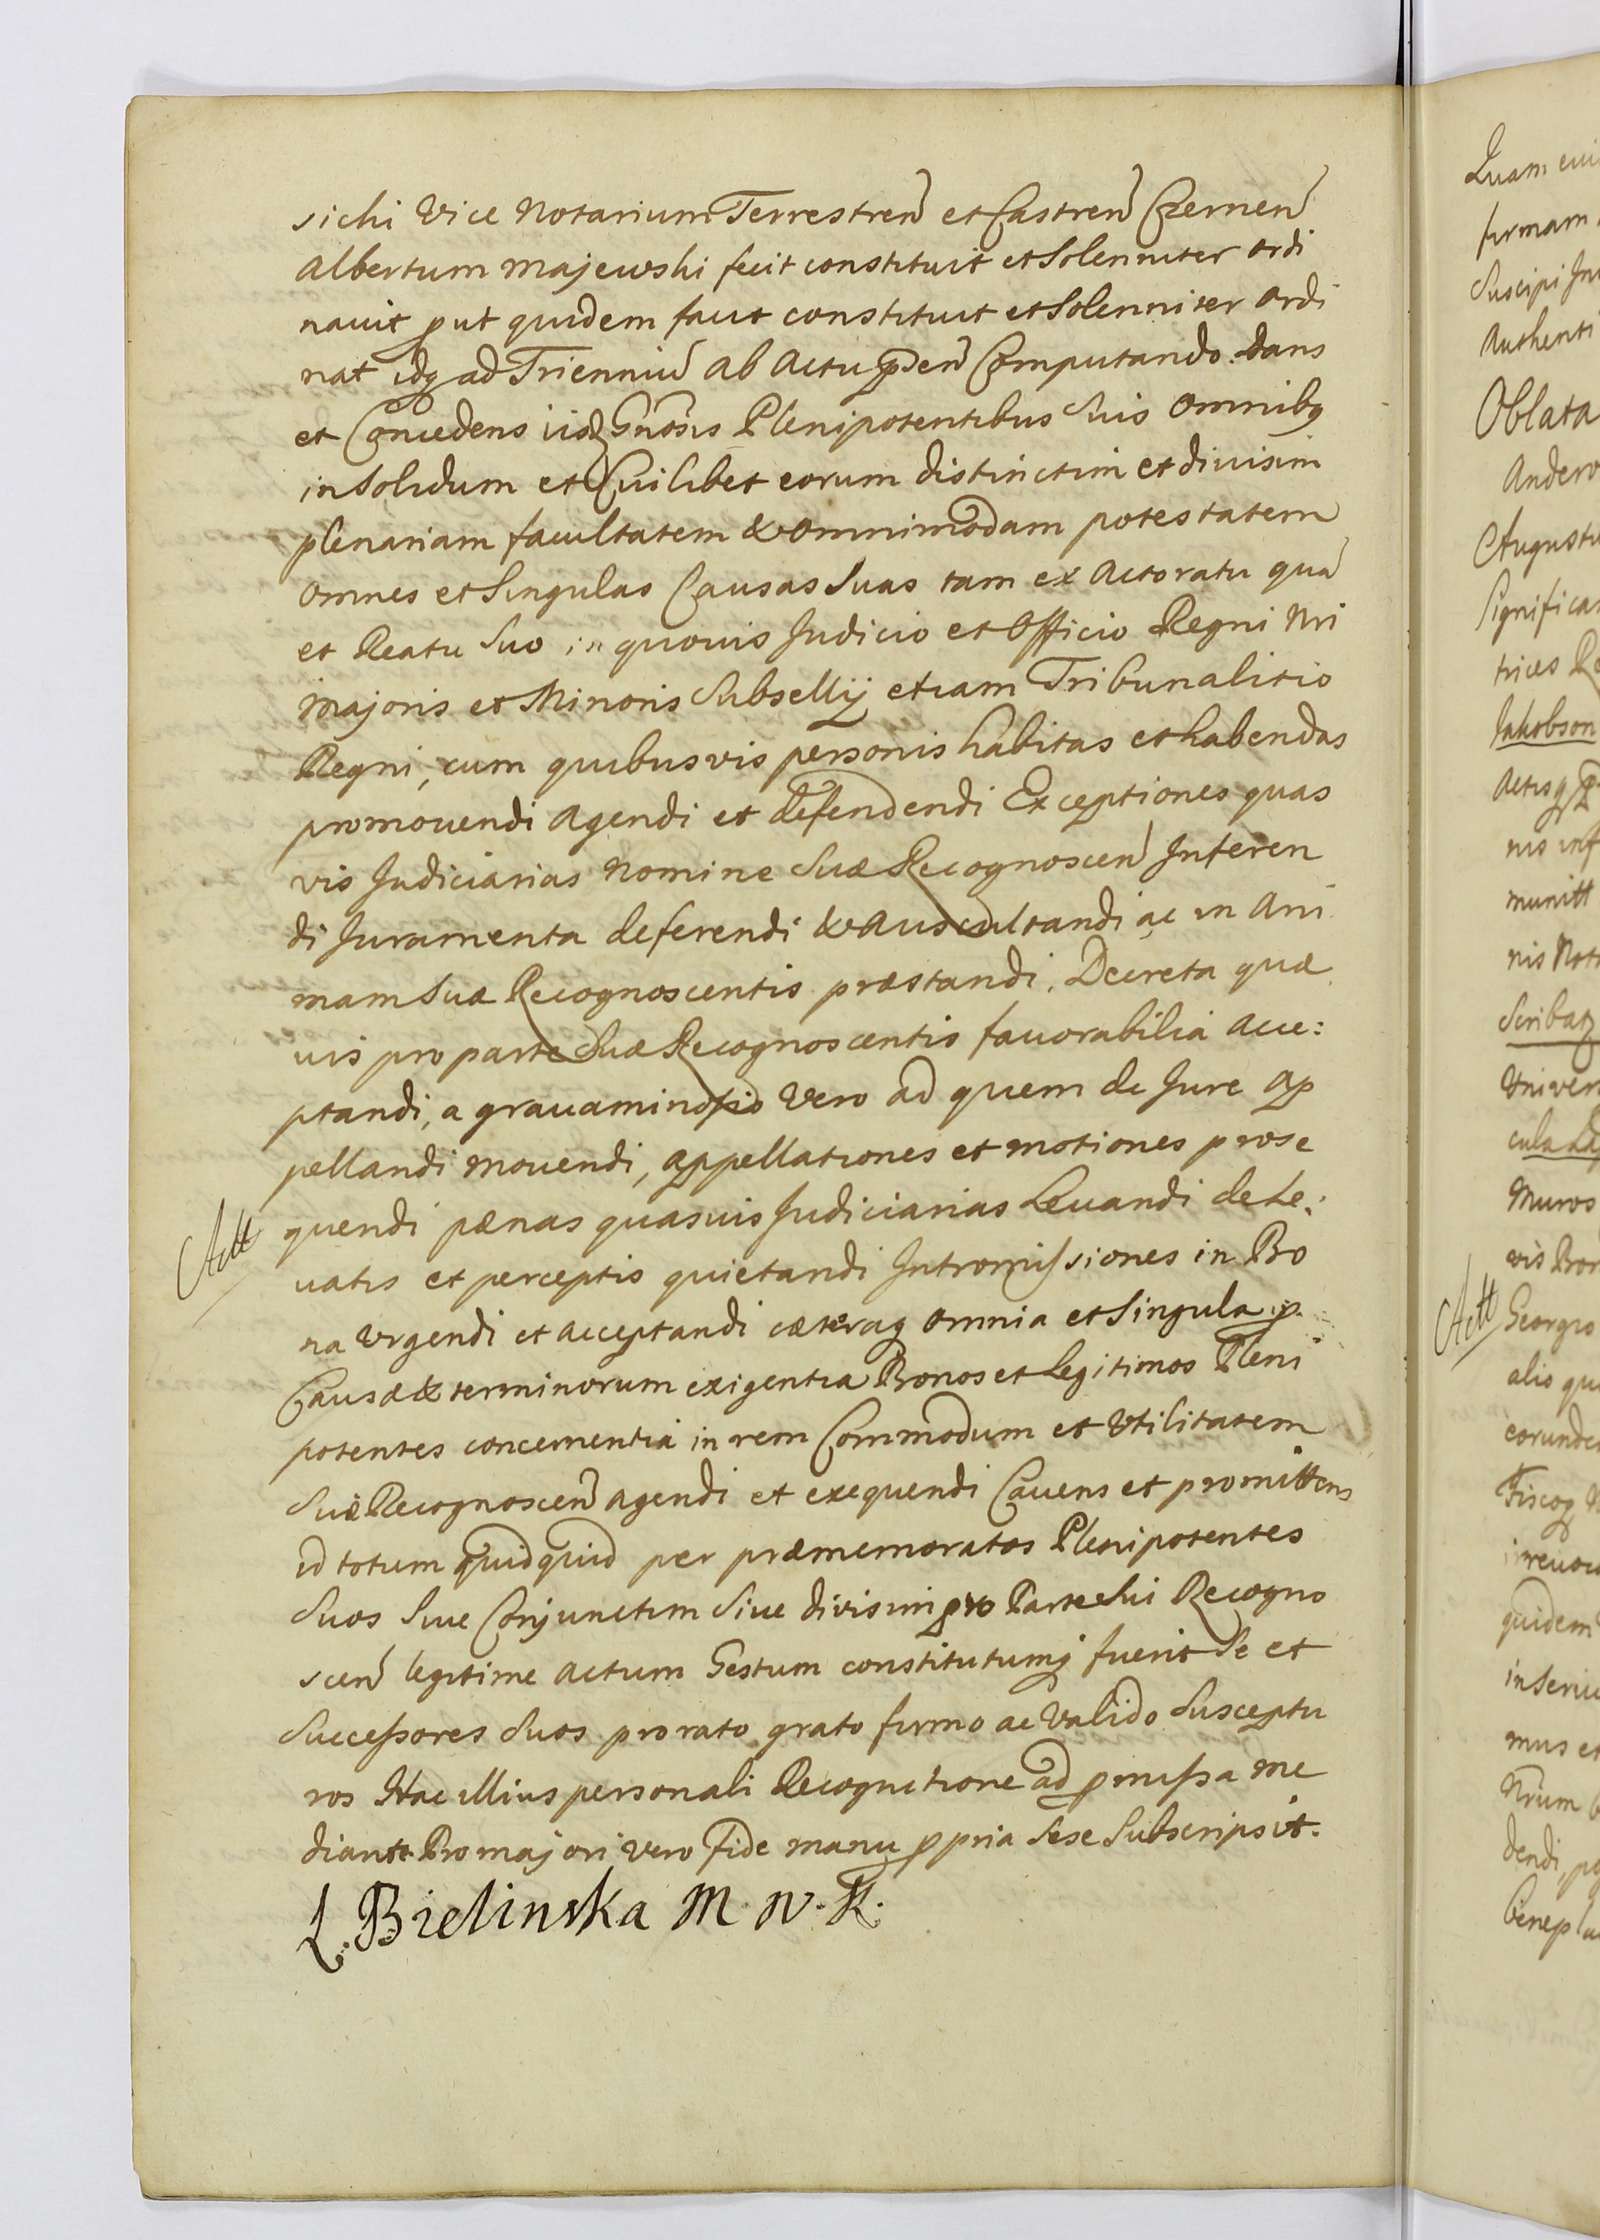 sichi Vice Notarium Terrestren et Castren Czernen
Albertum Majewski fecit constituit et Solenniter ordi
navit put quidem facit constituit et Solenniter Ordi
nat idq ad Trienniu ab Actu pnsen Computando. Dans
et Concedens iisd Gnosis Plenipotentibus Suis Omnibq
in Solidum et Cuilibet eorum distinctim et divisim
plenariam facultatem & omnimodam potestatem
Omnes et Singulas Causas Suas tam ex Actoratu qua
et Reatu Suo in quovis Judicio et Officio Regni Nri
Majoris et Minoris Subsellij etiam Tribunalitio
Regni, cum quibusvis personis habitas et habendas
promovendi agendi et defendendi Exceptiones quas
vis Judiciarias Nomine Suæ Recognoscen Inferen
di Juramenta deferendi & Auscultandi ac in Ani
mam Suæ Recognoscentis præstandi, Decreta quæ
vis pro parte Suæ Recognoscentis favorabilia acce:
ptandi, a gravaminosis Vero ad quem de Jure ap
pellandi movendi, appellationes et motiones prose
Actt
quendi pænas quasvis Judiciarias Levandi de Le:
vatis et perceptis quietandi Intromissiones in Bo
na Urgendi et acceptandi cæteraq omnia et Singula p
Causæ & terminorum exigentia Bonos et Legitimos Pleni
potentes concernentia in rem Commodum et Utilitatem
Suæ Recognoscen agendi et exequendi Cavens et promittens
id totum quidquid per præmemoratos Plenipotentes
Suos Sive Conjunctim Sive divisim pro Parte Sui Recogno
scen legitime actum Gestum constitutumq fuerit Se et
Successores Suos pro rato grato firmo ac Valido Susceptu
ros Hac illius personali Recognitione ad pmissa me
diante. Pro majori vero fide manu ppria Sese Subscripsit.
L. Bielinska M. N. K.
Quam
firmam
Suscipi
Authenti
Oblata
Andero
Augustu
Significa
trices
Jakobson
nis
munitt
nis
Scribatz
Univer
Muros
vis
Actt
Georgio
alis
Fiscoq
quidem
mus et
Nrum
dendi